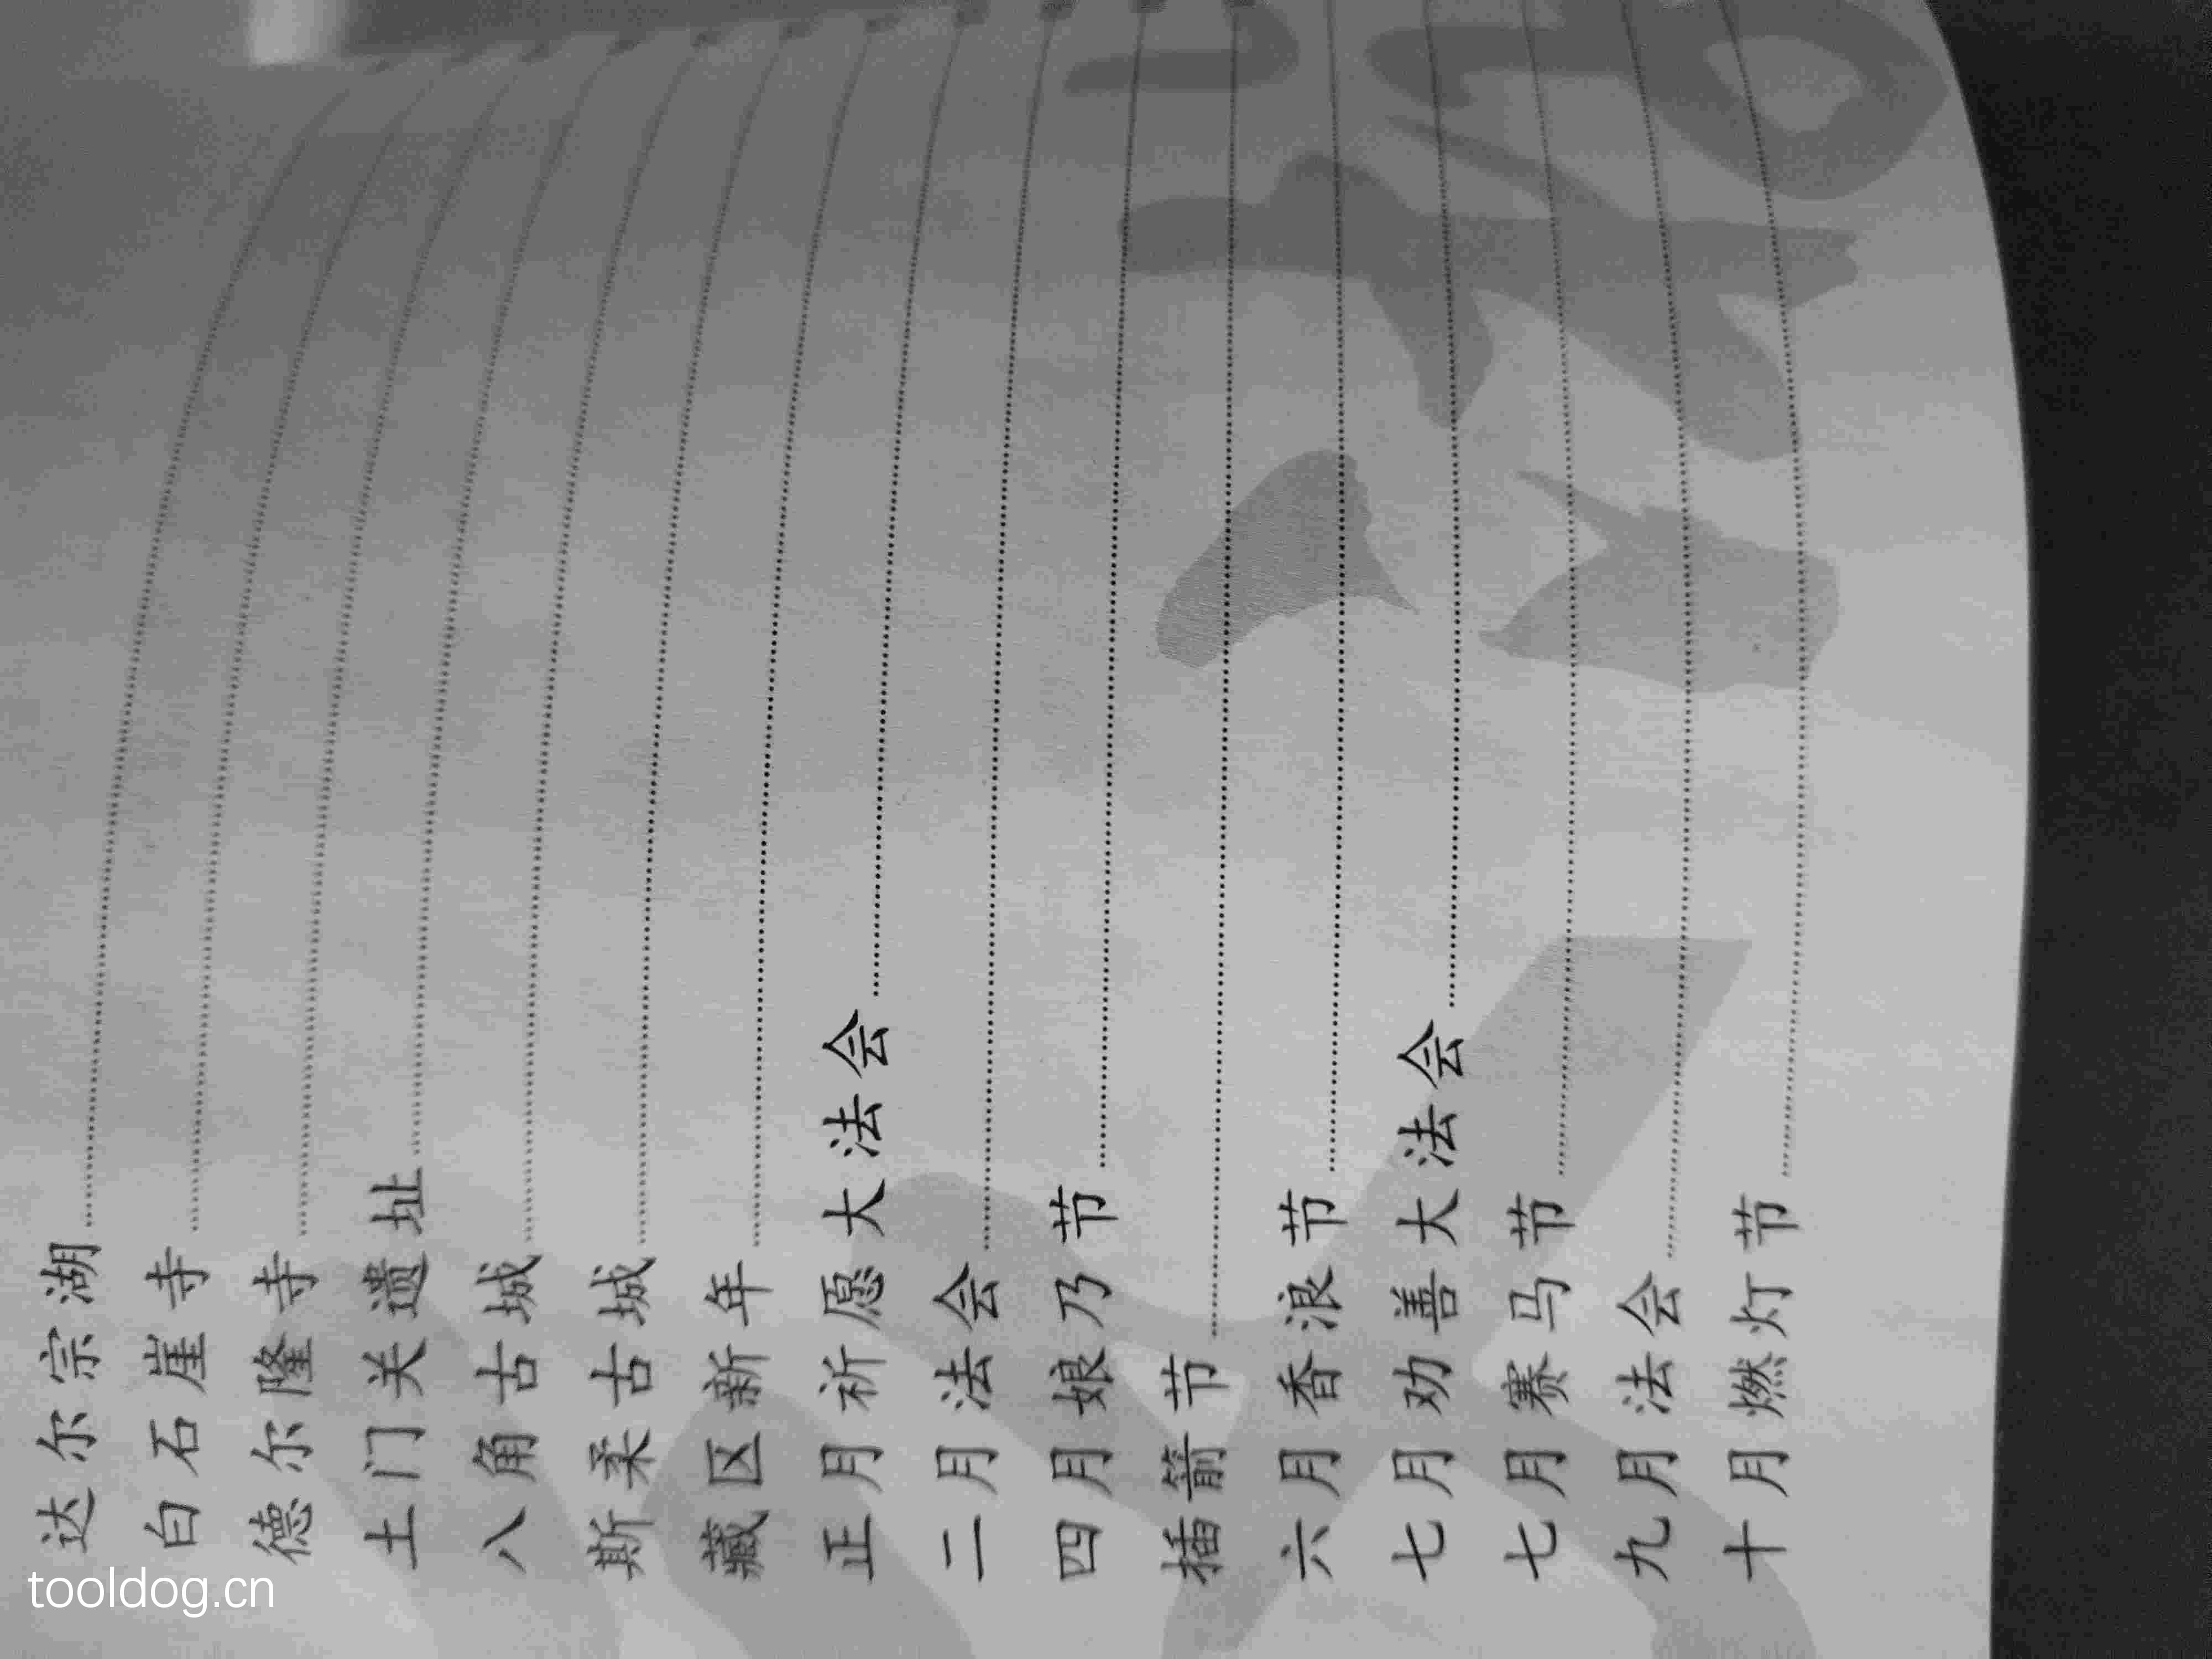 达尔宗湖
白石崖寺
德尔隆寺
土门关遗址
八角古城
斯柔古城
藏区新年
正月祈愿大法会
二月法会
四月娘乃节
插箭节
六月香浪节
七月劝善大法会
七月赛马节
九月法会
十月燃灯节
tooldog.cn